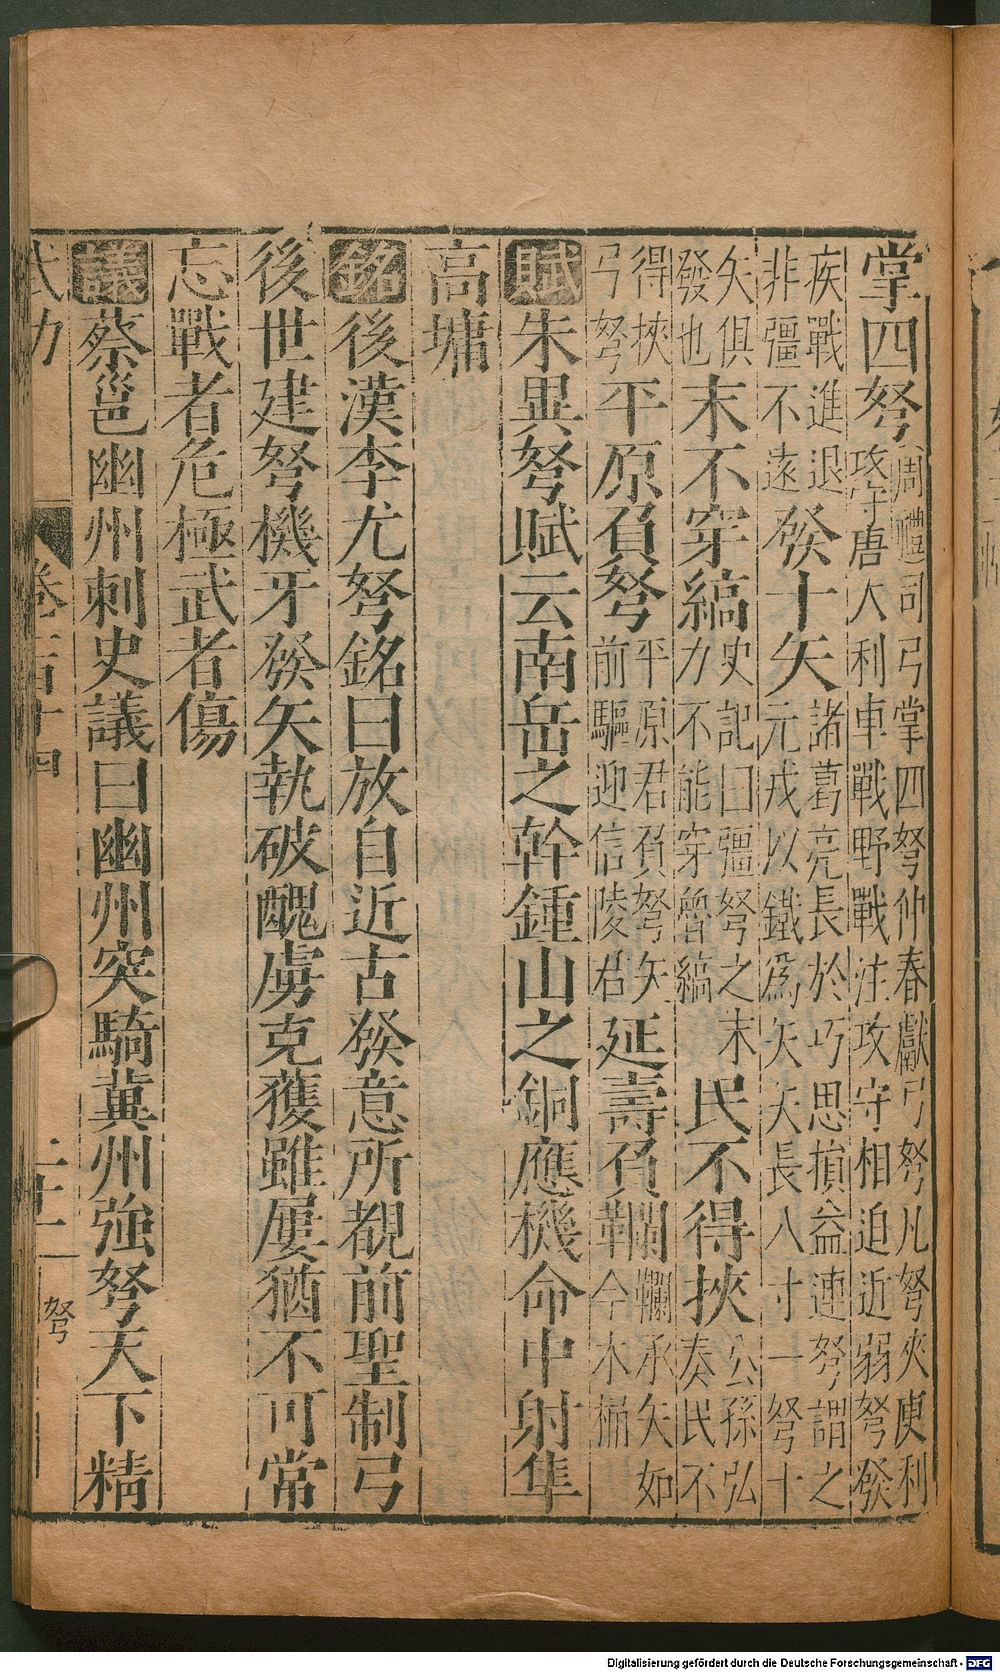 掌四弩周禮司弓掌四弩仲春獻弓弩凡弩夾庾利
攻守唐大利車戰野戰注攻守相迫近弱弩發
疾戰進退
非彊不遠
發十矢諸葛亮長於巧思損益連弩謂之
元戎以鐵爲矢矢長八寸一弩十
矢俱
發也
末不穿縞史記曰彊弩之末
力不能穿魯縞
民不得挾公孫弘
奏民不
得挾
弓弩
平原負弩平原君負弩矢
前驅迎信陵君
延壽負韊韊承矢如
今木桶
賦朱異弩賦云南岳之幹鍾山之銅應機命中射隼
高墉
銘後漢李尤弩銘曰放自近古發意所覩前聖制弓
後世建弩機牙發矢執破醜虜克獲雖屢猶不可常
忘戰者危極武者傷
議蔡邕幽州刺史議曰幽州突騎冀州強弩天下精
弩
Digitalisierung gefördert durch die Deutsche Forschungsgemeinschaft - DFG